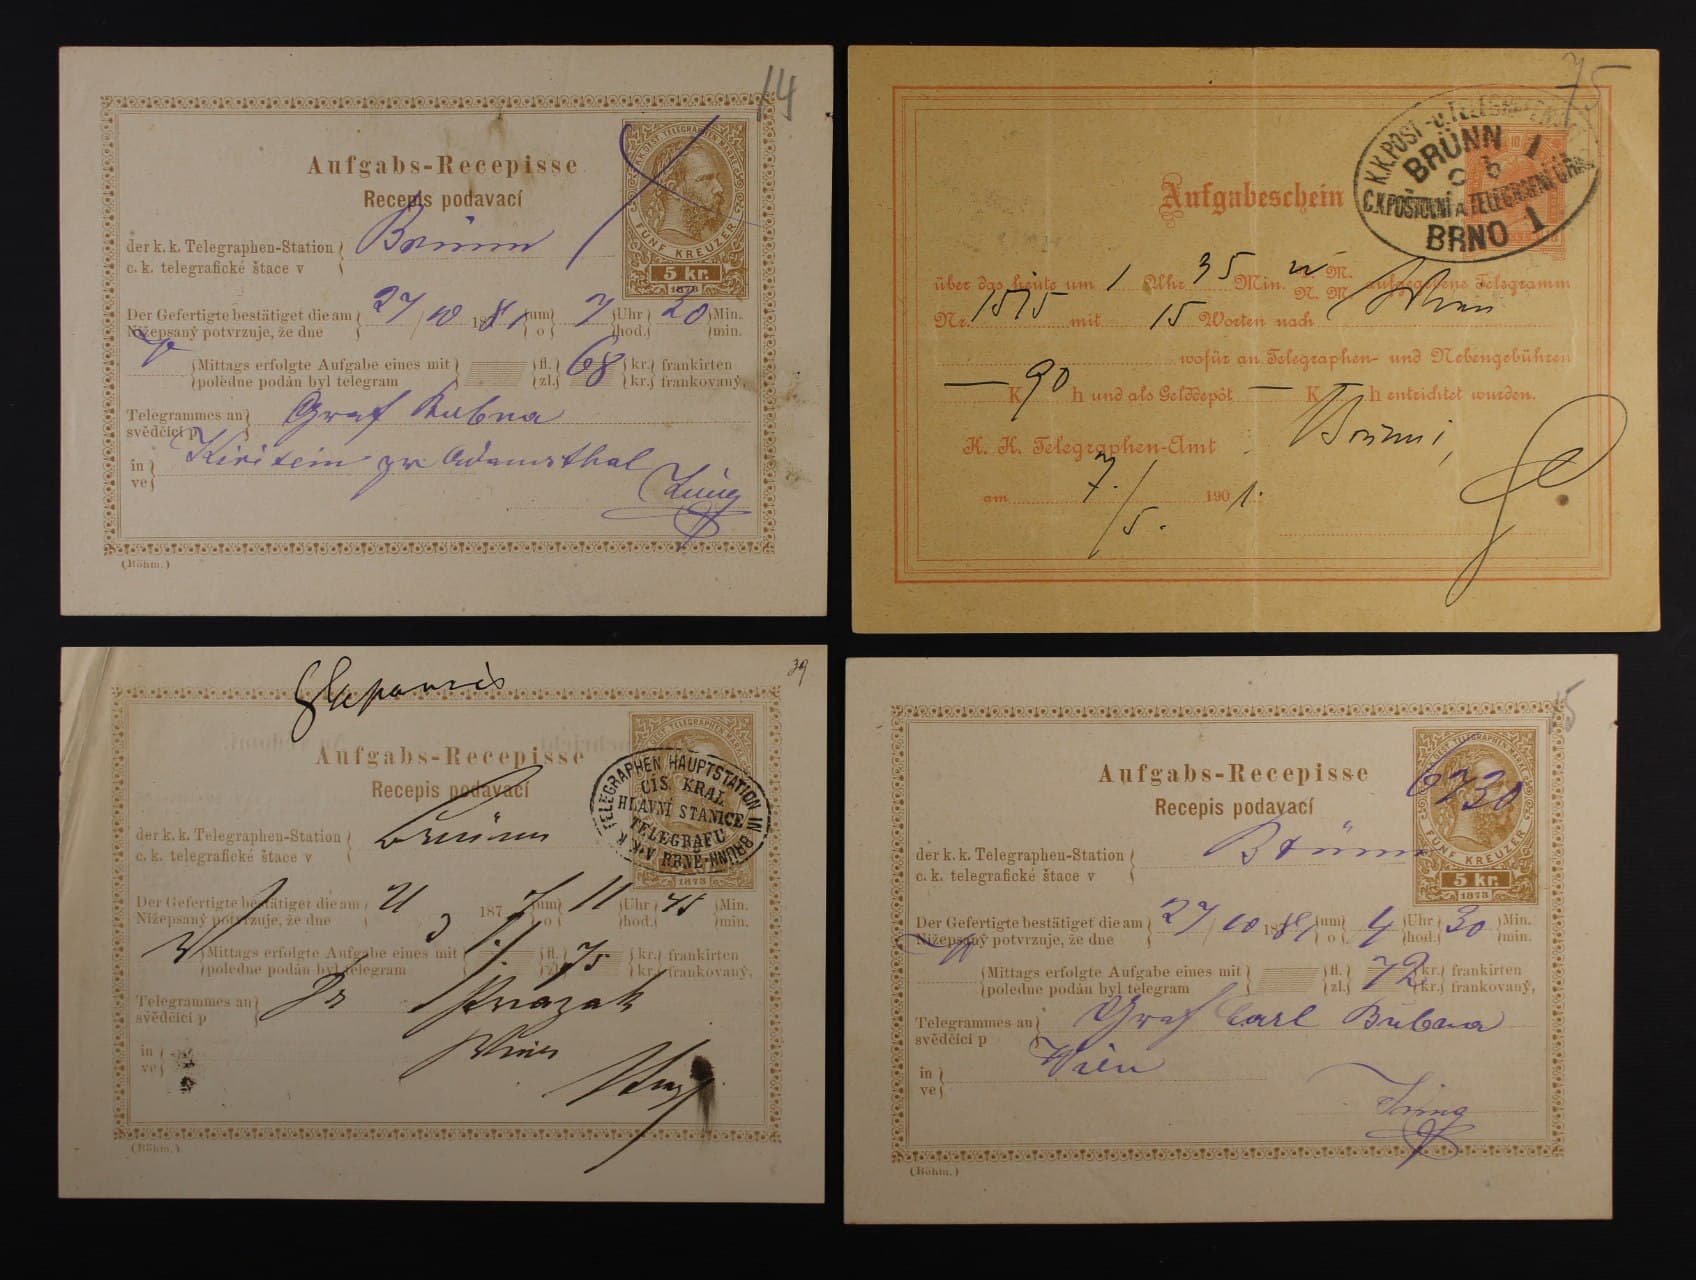 14
K.K. OEST. TELEGRAPHEN MARKE
FÜNF KREUZER
5 kr.
1873
Aufgabs-Recepisse
Recepis podavací
der k. k. Telegraphen-Station
c. k. telegrafické štace v
Brünn
Der Gefertigte bestätiget die am 27/10 1881 um 7 Uhr 20 Min.
Nižepsaný potvrzuje, že dne o hod. min.
Mittags erfolgte Aufgabe eines mit fl. 68 kr. frankirten
poledne podán byl telegram zl. kr. frankovaný,
Telegrammes an Graf Bubna
svědčící p
in Kiritein pr Adamsthal
ve
(Böhm.)
75
K.K. POST- u. TELEGRAFEN
BRÜNN 1
c b
C.K. POŠTOVNÍ A TELEGRAFNÍ ÚŘAD
BRNO 1
10
Aufgabeschein
über das heute um 1 Uhr 35 Min. V. M. aufgegebene Telegramm
N. M.
Nr. 1515 mit 15 Worten nach Wien
wofür an Telegraphen- und Nebengebühren
— K 90 h und als Gelddepôt — K h entrichtet wurden.
K. K. Telegraphen-Amt Brünn,
am 7/5. 1901.
39
K. K. TELEGRAPHEN HAUPTSTATION IN BRÜNN
CIS. KRAL.
HLAVNÍ STANICE
TELEGRAFU
V BRNĚ
1873
Aufgabs-Recepisse
Recepis podavací
der k. k. Telegraphen-Station
c. k. telegrafické štace v
Brünn
Der Gefertigte bestätiget die am 187 um 11 Uhr 45 Min.
Nižepsaný potvrzuje, že dne o hod. min.
Mittags erfolgte Aufgabe eines mit fl. 75 kr. frankirten
poledne podán byl telegram zl. kr. frankovaný,
Telegrammes an Dr Prazak
svědčící p
Wien
in
ve
(Böhm.)
15
6730
FÜNF KREUZER
5 kr.
1873
Aufgabs-Recepisse
Recepis podavací
der k. k. Telegraphen-Station
c. k. telegrafické štace v
Brünn
Der Gefertigte bestätiget die am 27/10 1881 um 4 Uhr 30 Min.
Nižepsaný potvrzuje, že dne o hod. min.
Mittags erfolgte Aufgabe eines mit fl. 72 kr. frankirten
poledne podán byl telegram zl. kr. frankovaný,
Telegrammes an Graf Carl Bubna
svědčící p
in Wien
ve
(Böhm.)